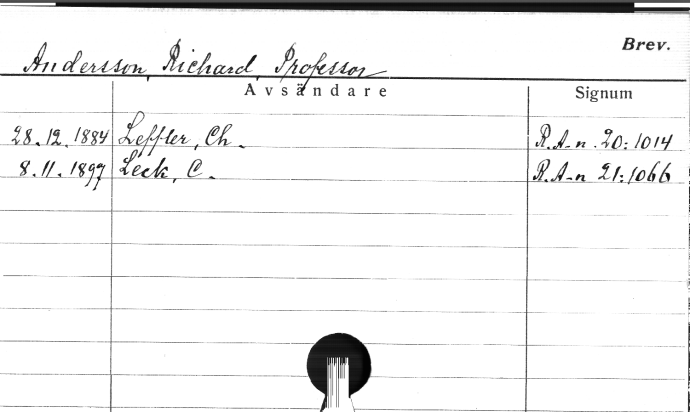 Brev.
Andersson, Richard, Professor
Avsändare Signum
28.12.1884 Leffler, Ch. R.A-n. 20:1014
8.11.1897 Leck, C. R.A-n 21:1066